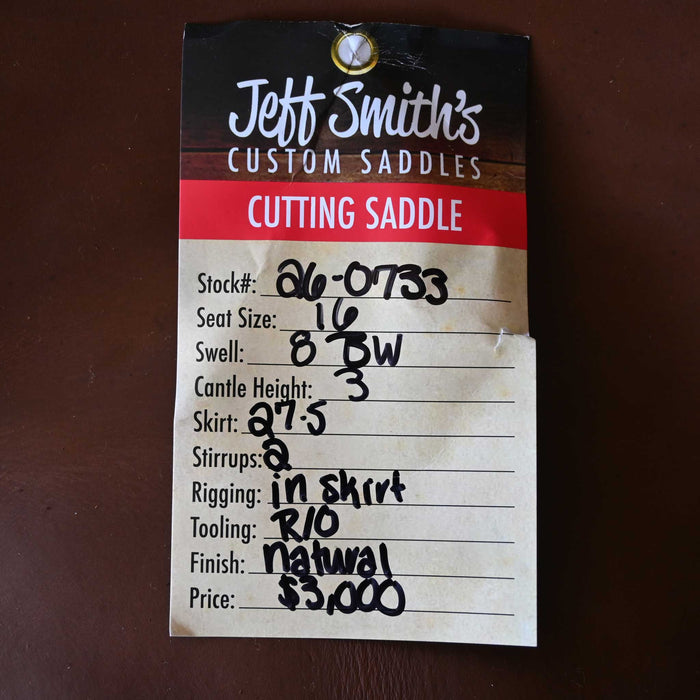 Jeff Smith's
CUSTOM SADDLES
CUTTING SADDLE
Stock#: 26-0733
Seat Size: 16
Swell: 8 BW
Cantle Height: 3
Skirt: 27.5
Stirrups: 2
Rigging: in skirt
Tooling: R/O
Finish: natural
Price: $3,000